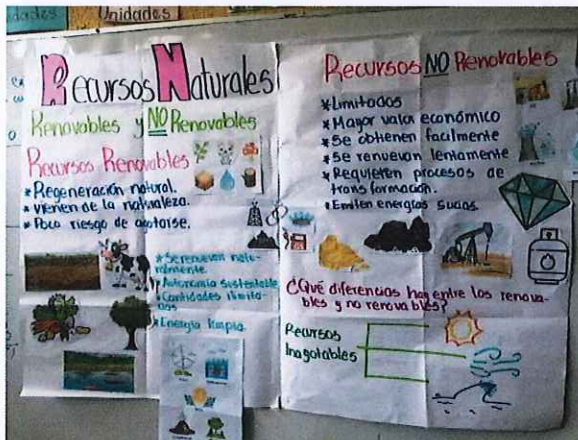 Unidades
Recursos Naturales
Renovables y NO Renovables
Recursos Renovables
* Regeneración natural.
* vienen de la naturaleza.
* Poco riesgo de agotarse.
* Se renuevan natu-
ralmente.
* Autonomía sustentable
* Cantidades ilimita-
das
* Energía limpia.
Recursos NO Renovables
* Limitados
* Mayor valor económico
* Se obtienen facilmente
* Se renuevan lentamente
* Requieren procesos de
transformación.
* Emiten energías sucias.
¿Qué diferencias hay entre los renova-
bles y no renovables?
Recursos
Inagotables